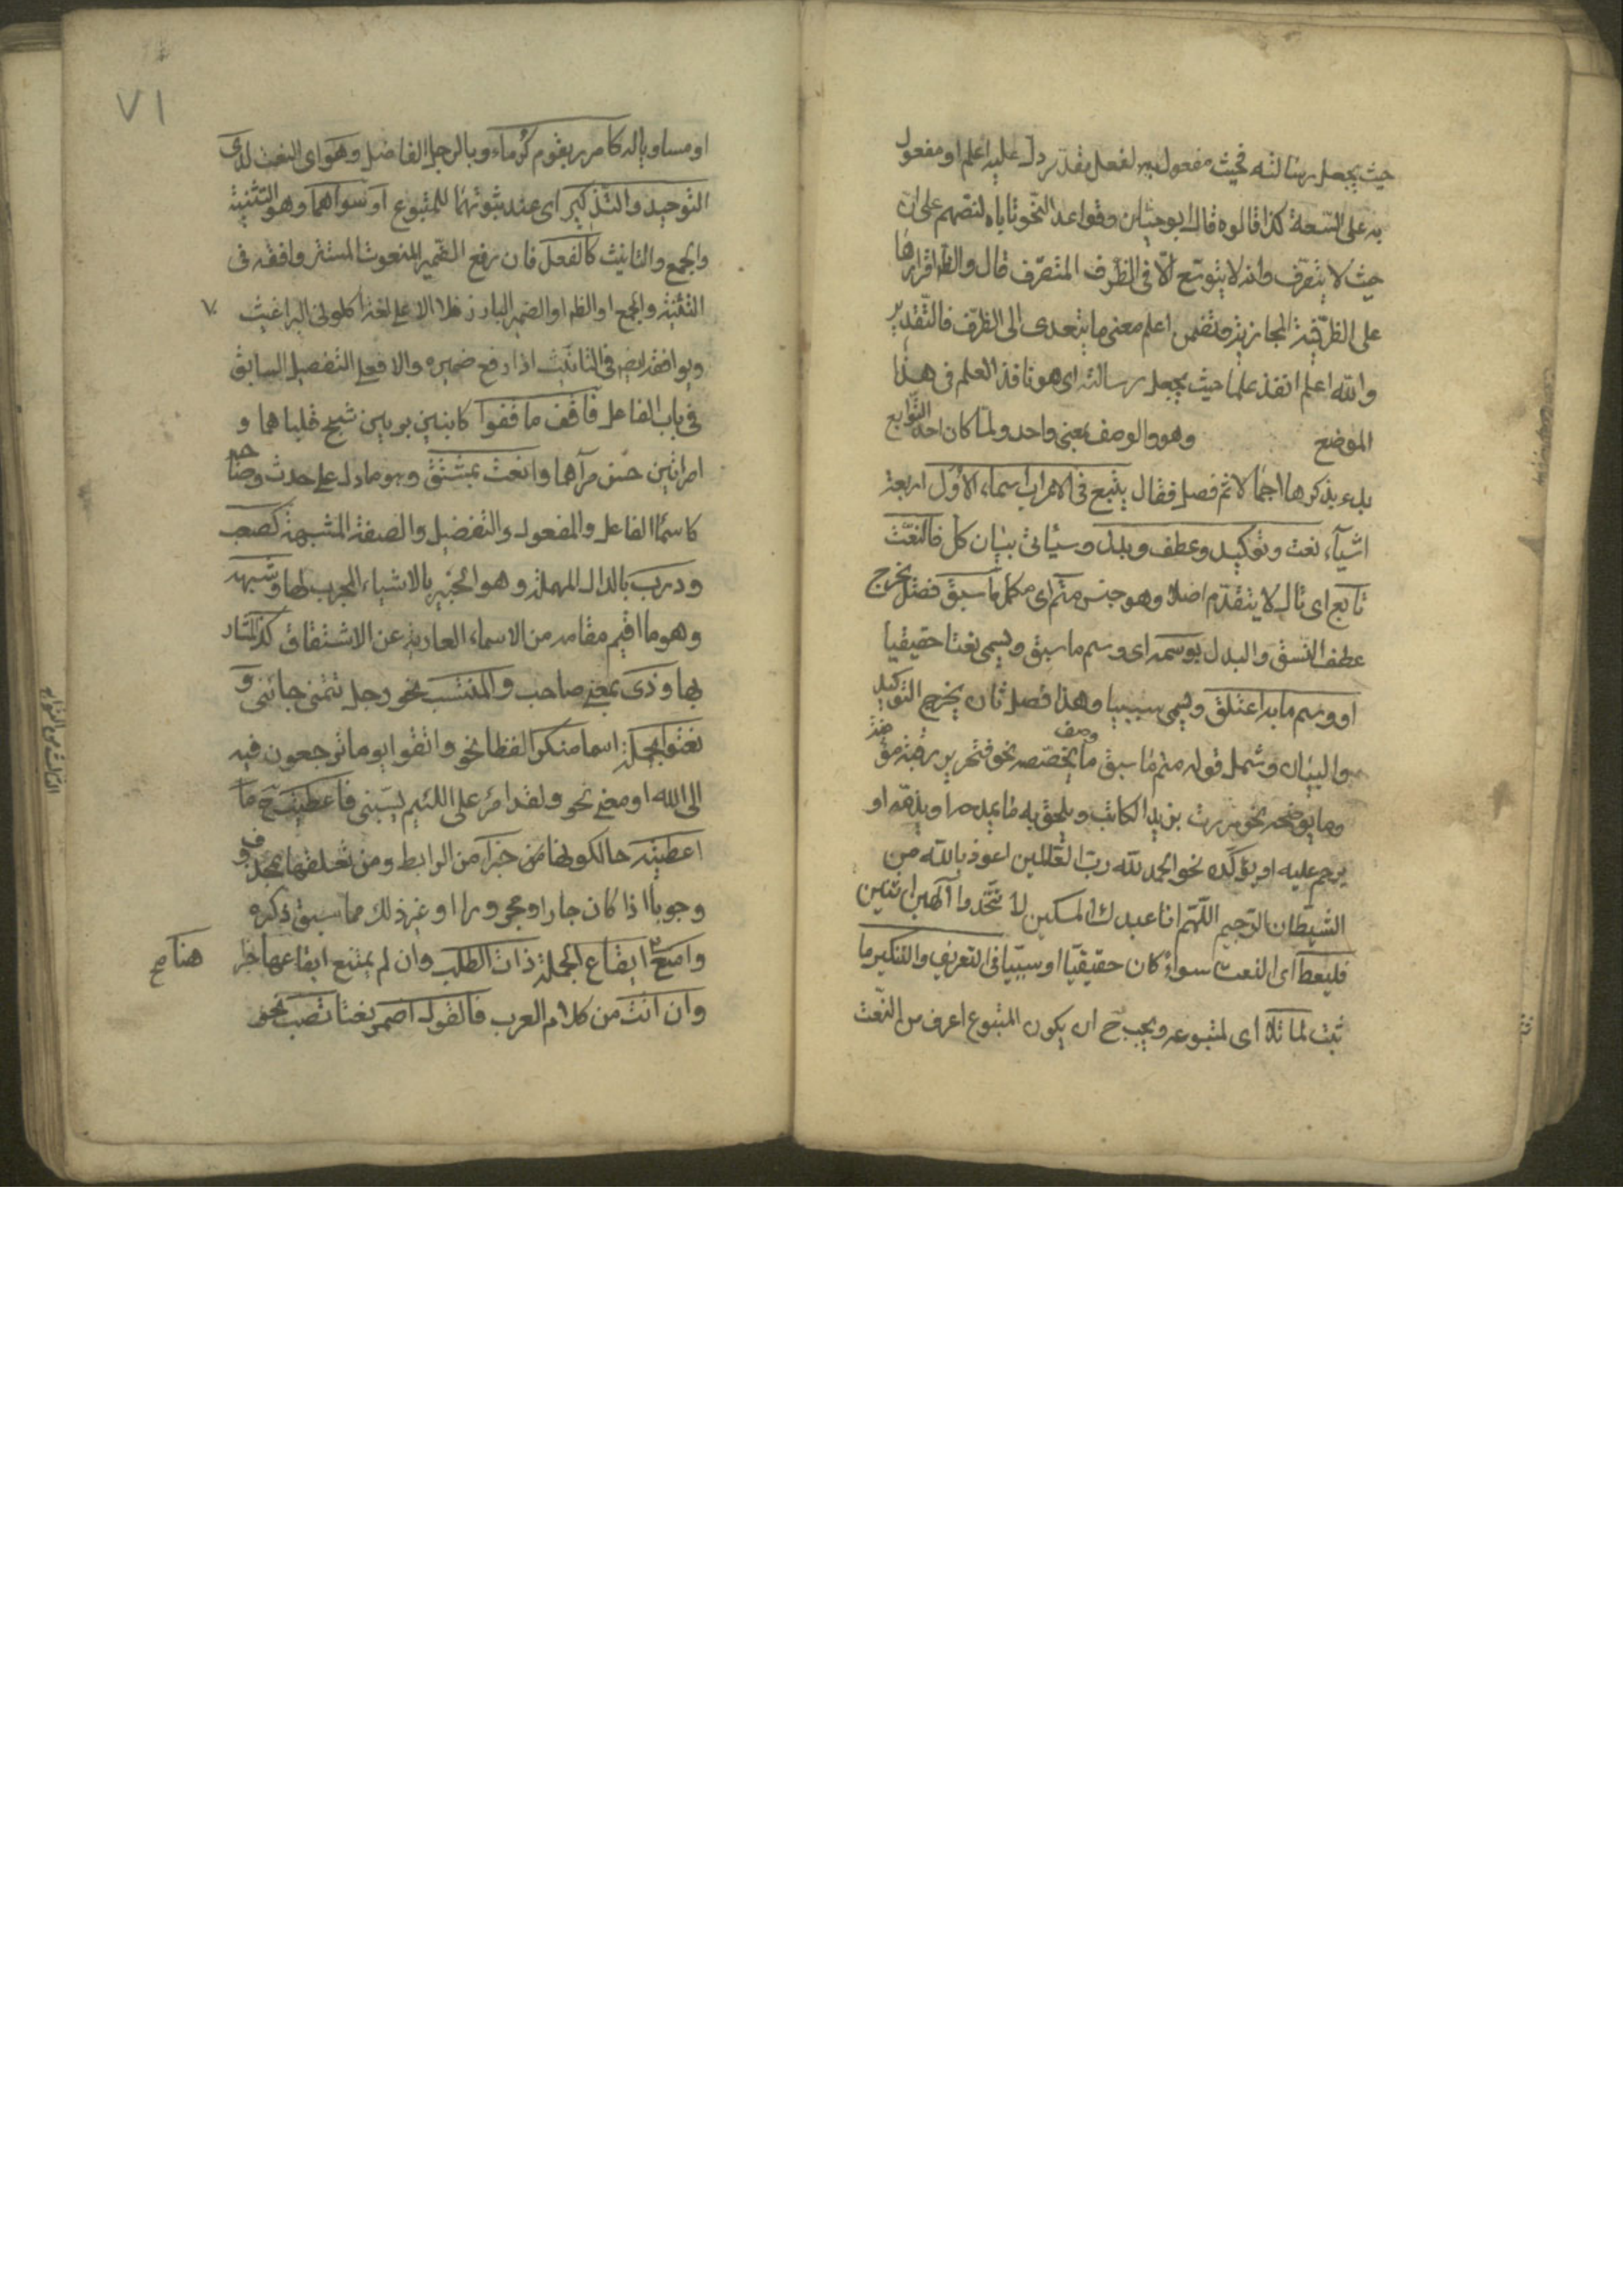 حيث يجعل رسالته فحيث مفعول به لفعل مقدر دل عليه اعلم او مفعول
به على السّعة كذا قالوه قال ابو حيان وقواعد النّحو تاباه لنصّهم على ان
حيث لا يتصرف وانه لا يتوسّع الّا فى الظّرف المتصرّف قال والظ اقرارها
على الظّرفيّة المجازية فتضمن اعلم معنى ما يتعدى الى الظّرف فالتّقدير
والله اعلم انفذ علما حيث يجعل رسالته اى هو نافذ العلم فى هذا
الموضع وهو والوصف بمعنى واحد ولمّا كان احد التّوابع
بدء بذكرها اجمالا ثم فصل فقال يتبع فى الاعراب اسماء الاوّل اربعة
اشيآء نعت وتوكيد وعطف وبدل وسيأتى بيان كل فالنّعت
تابع اى تال لا يتقدّم اصلا وهو جنس متم اى مكمل ما سبق فصل يخرج
عطف النّسق والبدل بوسمه اى وسم ما سبق ويسمى نعتا حقيقيا
او وسم ما به اعتلق ويسمى سببيا وهذا فصل ثان يخرج التّوكيد
والبيان وشمل قوله متم ما سبق ما يخصّصه نحو فتحرير رقبة مؤمنة
وصف
وما يوضحه نحو مررت بزيد الكاتب ويلحق به ما يمدحه او يذمّه او
يرحم عليه او يؤكّده نحو الحمد لله ربّ العالمين اعوذ بالله من
الشيطان الرّجيم اللّهم انا عبدك المسكين لا تتّخذوا آلهين اثنين
فليعط اى النعت سواءٌ كان حقيقيّا او سببيّا فى التعريف والتنكير ما
ثبت لما تلا اى لمتبوعه ويجب ح ان يكون المتبوع اعرف من النّعت
٧١
او مساويا له كامرر بقوم كرماء وبالرجل الفاضل وهو اى النعت لدى
التوحيد والتذكير اى عند ثبوتهما للمتبوع او سواهما وهو التّثنية
والجمع والتانيث كالفعل فان رفع الضّمير المنعوت المستتر وافقه فى
التثنية والجمع او الظ او الضمير البارز فلا الا على لغة اكلونى البراغيث
ويوافقه ايض فى التانيث اذا رفع ضميره والا فعلى التفصيل السابق
فى باب الفاعل فاقف ما قفوا كابنين بويين شج قلباهما و
امراتين حسن مرآهما وانعت بمشتق وهو ما دل على حدث وصاحبه
كاسما الفاعل والمفعول والتفضيل والصفة المشبهة كصعب
ودرب بالدال المهملة وهو الخبير بالاشياء المجرب لها وشبهه
وهو ما اقيم مقامه من الاسماء العارية عن الاشتقاق كذا المشار
بها وذى بمعنى صاحب والمنتسب نحو رجل تمتمى جائنى و
نعتوا بجملة اسما منكرا لفظا نحو واتقوا يوما ترجعون فيه
الى الله او معنى نحو ولقد امرّ على اللئيم يسبّنى فاعطيت ح ما
اعطيته حال كونها خبرا من الرابط ومن تعلقها بمحذوف
وجوبا اذا كان جارا ومجرورا او غير ذلك مما سبق ذكره
وامنع ايقاع الجملة ذات الطلب وان لم يمتنع ايقاعها خبرا
هنا صح
وان اتت من كلام العرب فالقول اضمر نعتا تصب نحو